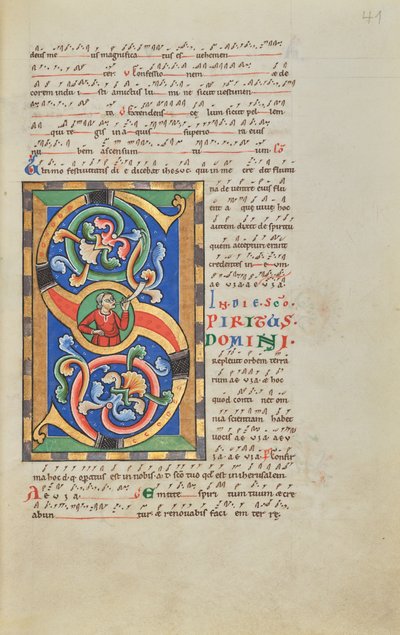 41
deus me us magnifica tus es uehemen
ter Confessio nem & de
corem indu i sti amictus lu mi ne sicut uestimen
to Extendens ce lum sicut pellem
qui te gis in aquis superio ra eius
nu bem ascensum tu um
ltimo festiuitatis die dicebat ihesus qui in me cre dit flumi
na de uentre eius flu
ent aque uiue hoc
autem dixit de spiritu
quem accepturi erant
credentes in eum
ae u ia ae u ia
IN DIE SCO
PIRITUS
DOMINI
Repleuit orbem terra
rum ae uia & hoc
quod conti net om
nia scientiam habet
uocis ae uia ae
uia ae uia Confir
ma hoc opatus est in nobis a templo sco tuo quod est in iherusalem
Ae u ia Emitte spiri tum tuum & cre
abun tur & renouabis faci em ter re